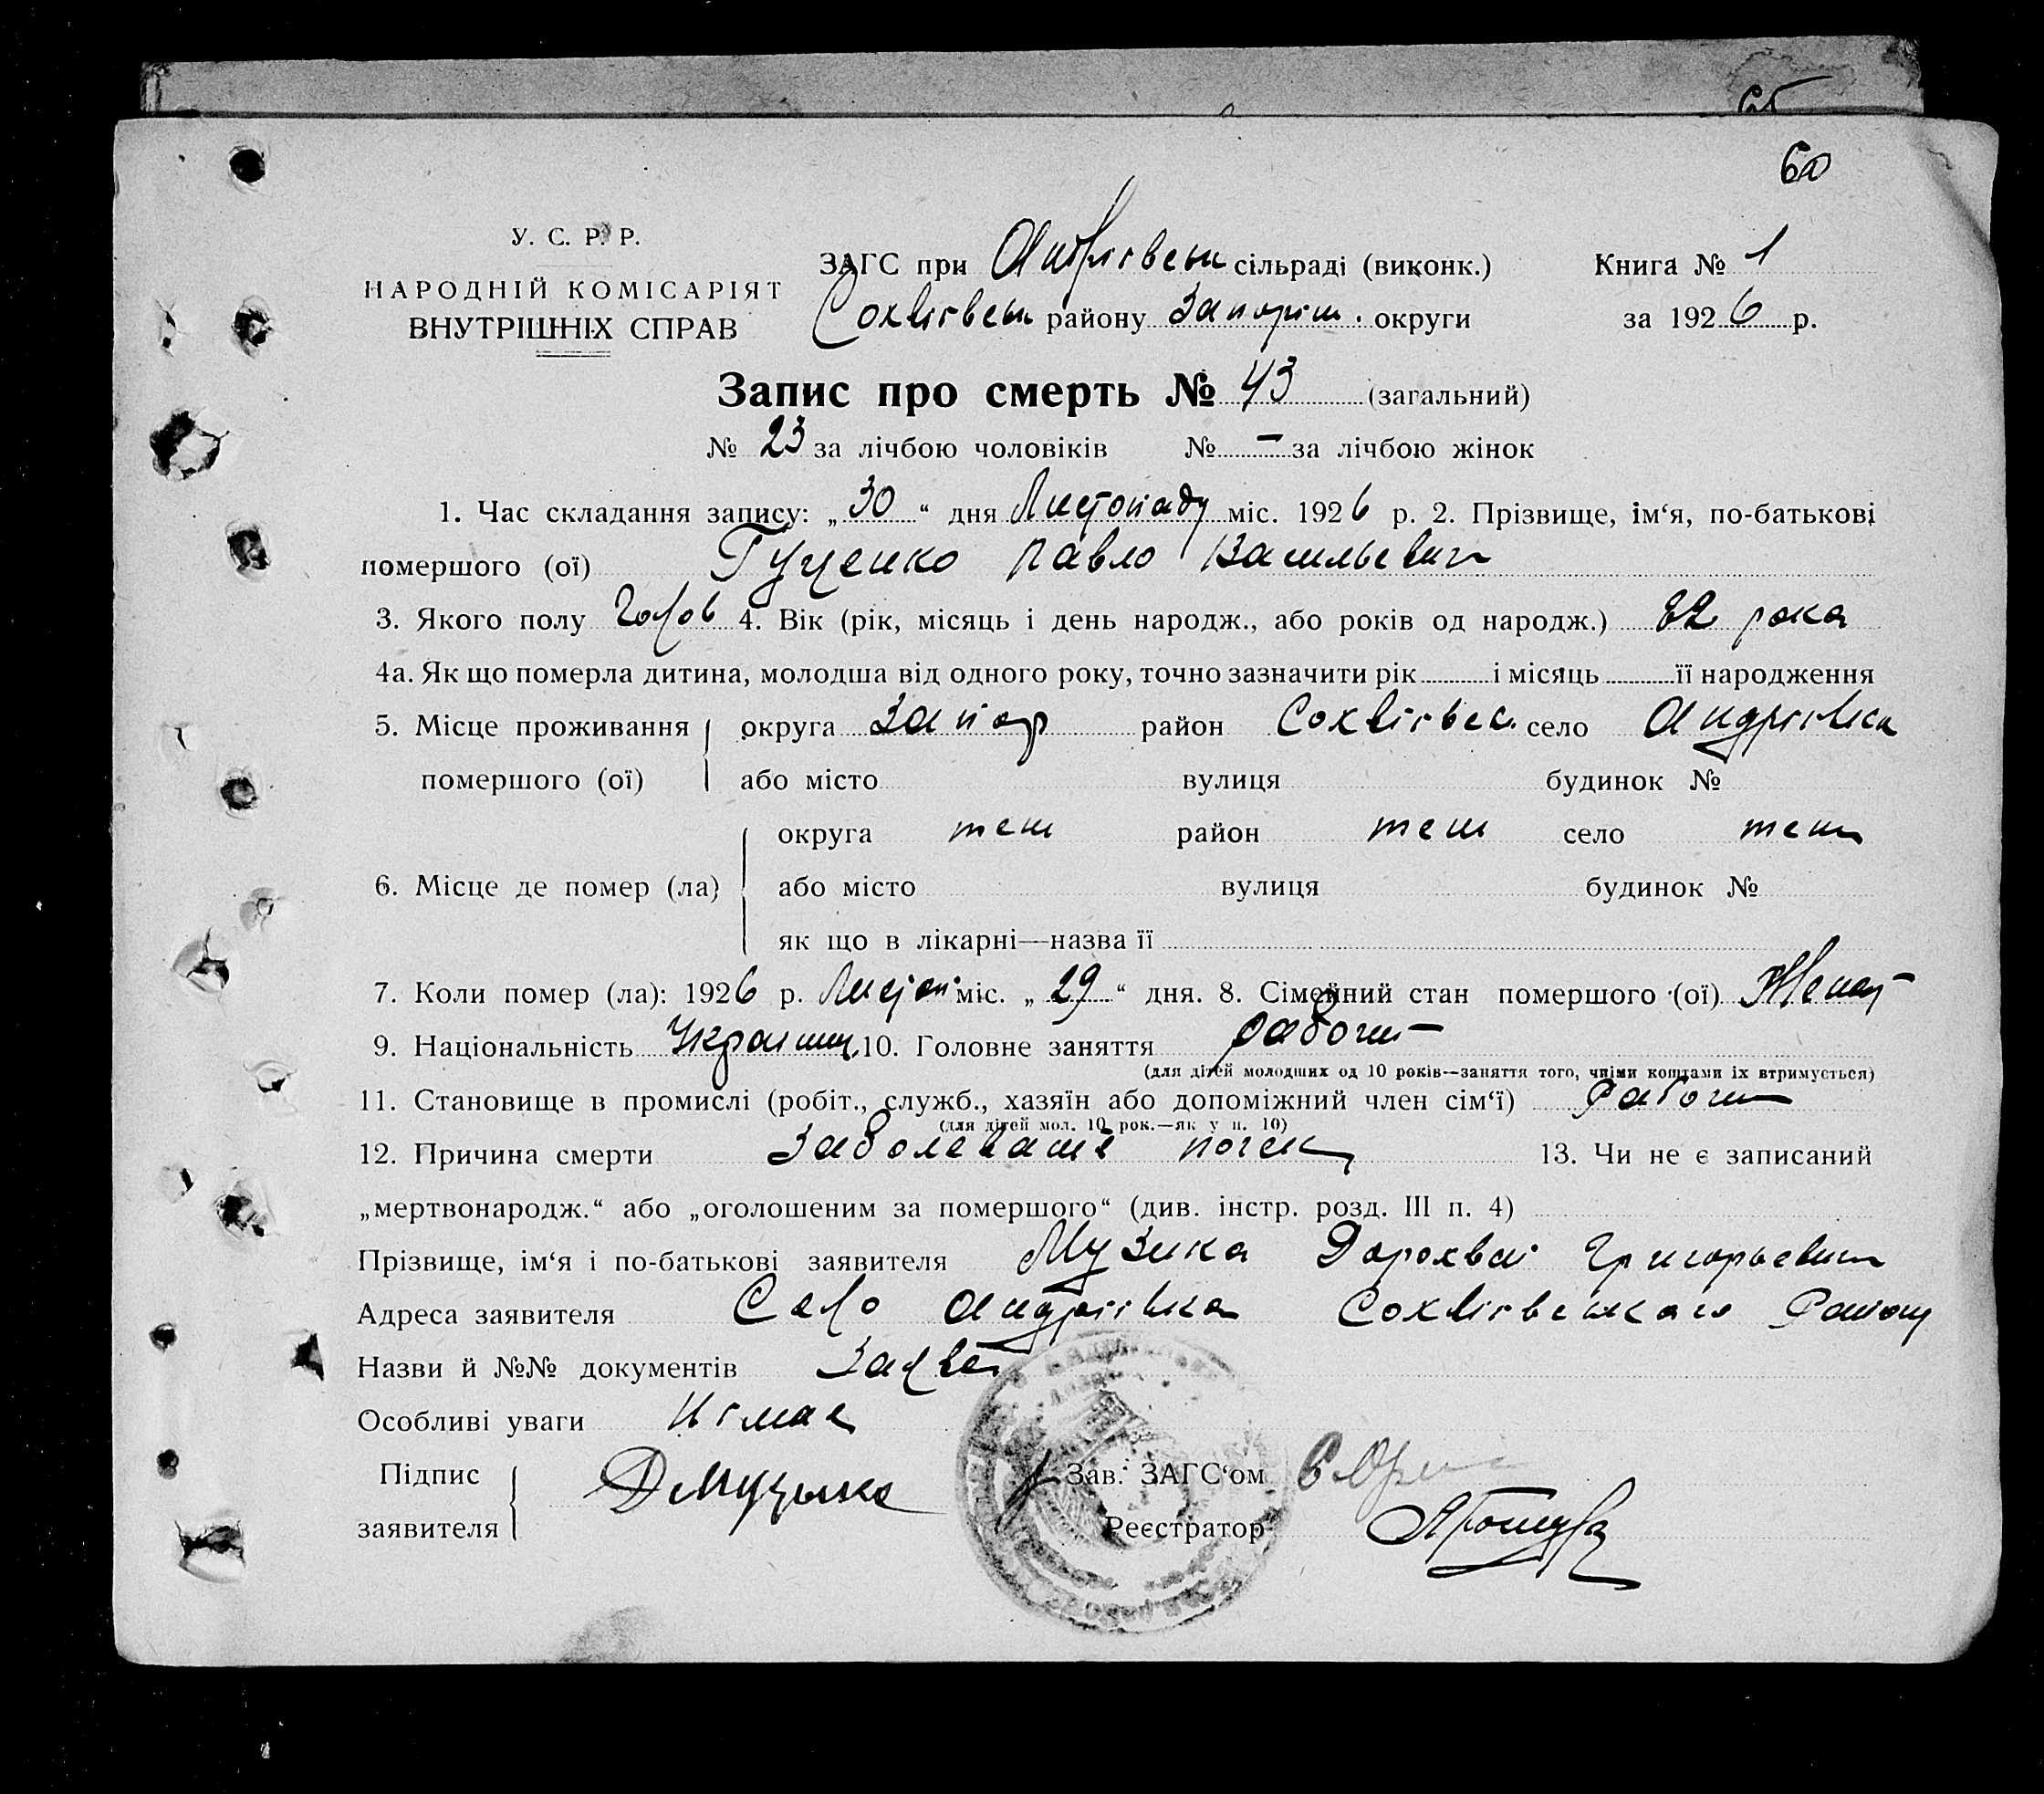 60
У. С. Р. Р.
НАРОДНІЙ КОМІСАРІЯТ
ВНУТРІШНІХ СПРАВ
ЗАГС при Андріівськ сільраді (виконк.)
Софіівськ району Запоріж. округи
Книга № 1
за 1926 р.
Запис про смерть № 43 (загальний)
№ 23 за лічбою чоловіків № — за лічбою жінок
1. Час складання запису: „30“ дня Листопаду міс. 1926 р. 2. Прізвище, ім‘я, по-батькові
помершого (ої) Гуценко Павло Васильевич
3. Якого полу Голов 4. Вік (рік, місяць і день народж., або років од народж.) 22 рока
4а. Як що померла дитина, молодша від одного року, точно зазначити рік і місяць її народження
5. Місце проживання округа Запор район Сохвіівск село Андріівка
помершого (ої) або місто вулиця будинок №
округа теж район теж село теж
6. Місце де помер (ла) або місто вулиця будинок №
як що в лікарні—назва її
7. Коли помер (ла): 1926 р. Листоп. міс. „29“ дня. 8. Сімейний стан помершого (ої) Женат
9. Національність Украінец 10. Головне заняття рабочий
(для дітей молодших од 10 років—заняття того, чиїми коштами їх втримується)
11. Становище в промислі (робіт., служб., хазяїн або допоміжний член сім‘ї) Рабочий
(для дітей мол. 10 рок.—як у п. 10)
12. Причина смерти Заболевание почек 13. Чи не є записаний
„мертвонародж.“ або „оголошеним за помершого“ (див. інстр. розд. III п. 4)
Прізвище, ім‘я і по-батькові заявителя Музика Дорохвей Григорьевич
Адреса заявителя Село Андріівка Сохвіівського Району
Назви й №№ документів
Особливі уваги Німає
Підпис Зав. ЗАГС‘ом
заявителя ДМузыка Реєстратор